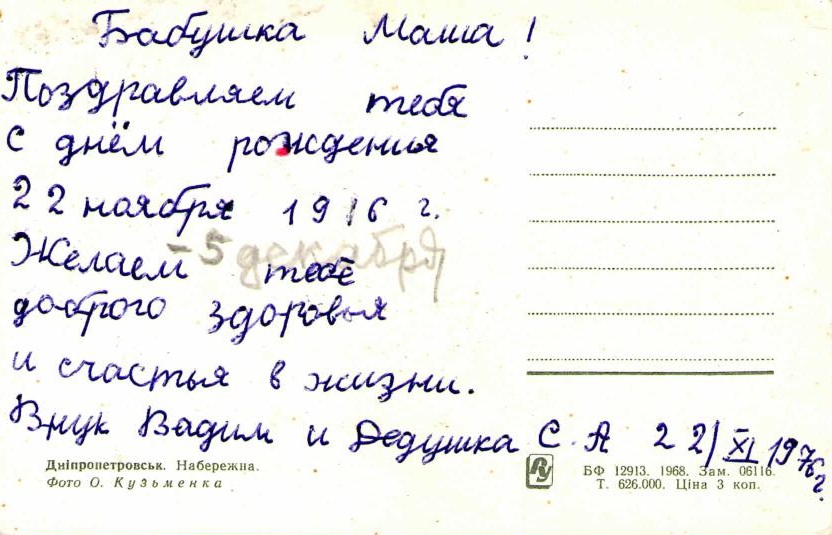 Бабушка Маша!
Поздравляем тебя
с днём рождения
22 ноября 1916 г.
- 5 декабря
Желаем тебе
доброго здоровья
и счастья в жизни.
Внук Вадим и Дедушка С. А 22/XI 1976 г.
Дніпропетровськ. Набережна.
Фото О. Кузьменка
БФ 12913. 1968. Зам. 06116.
Т. 626.000. Ціна 3 коп.